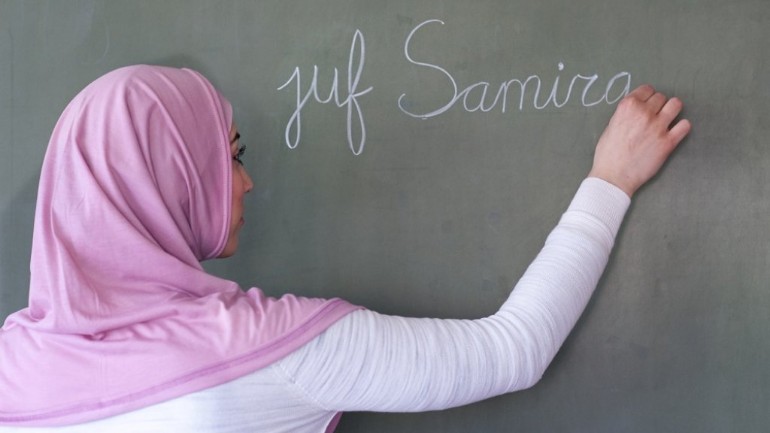 juf Samira